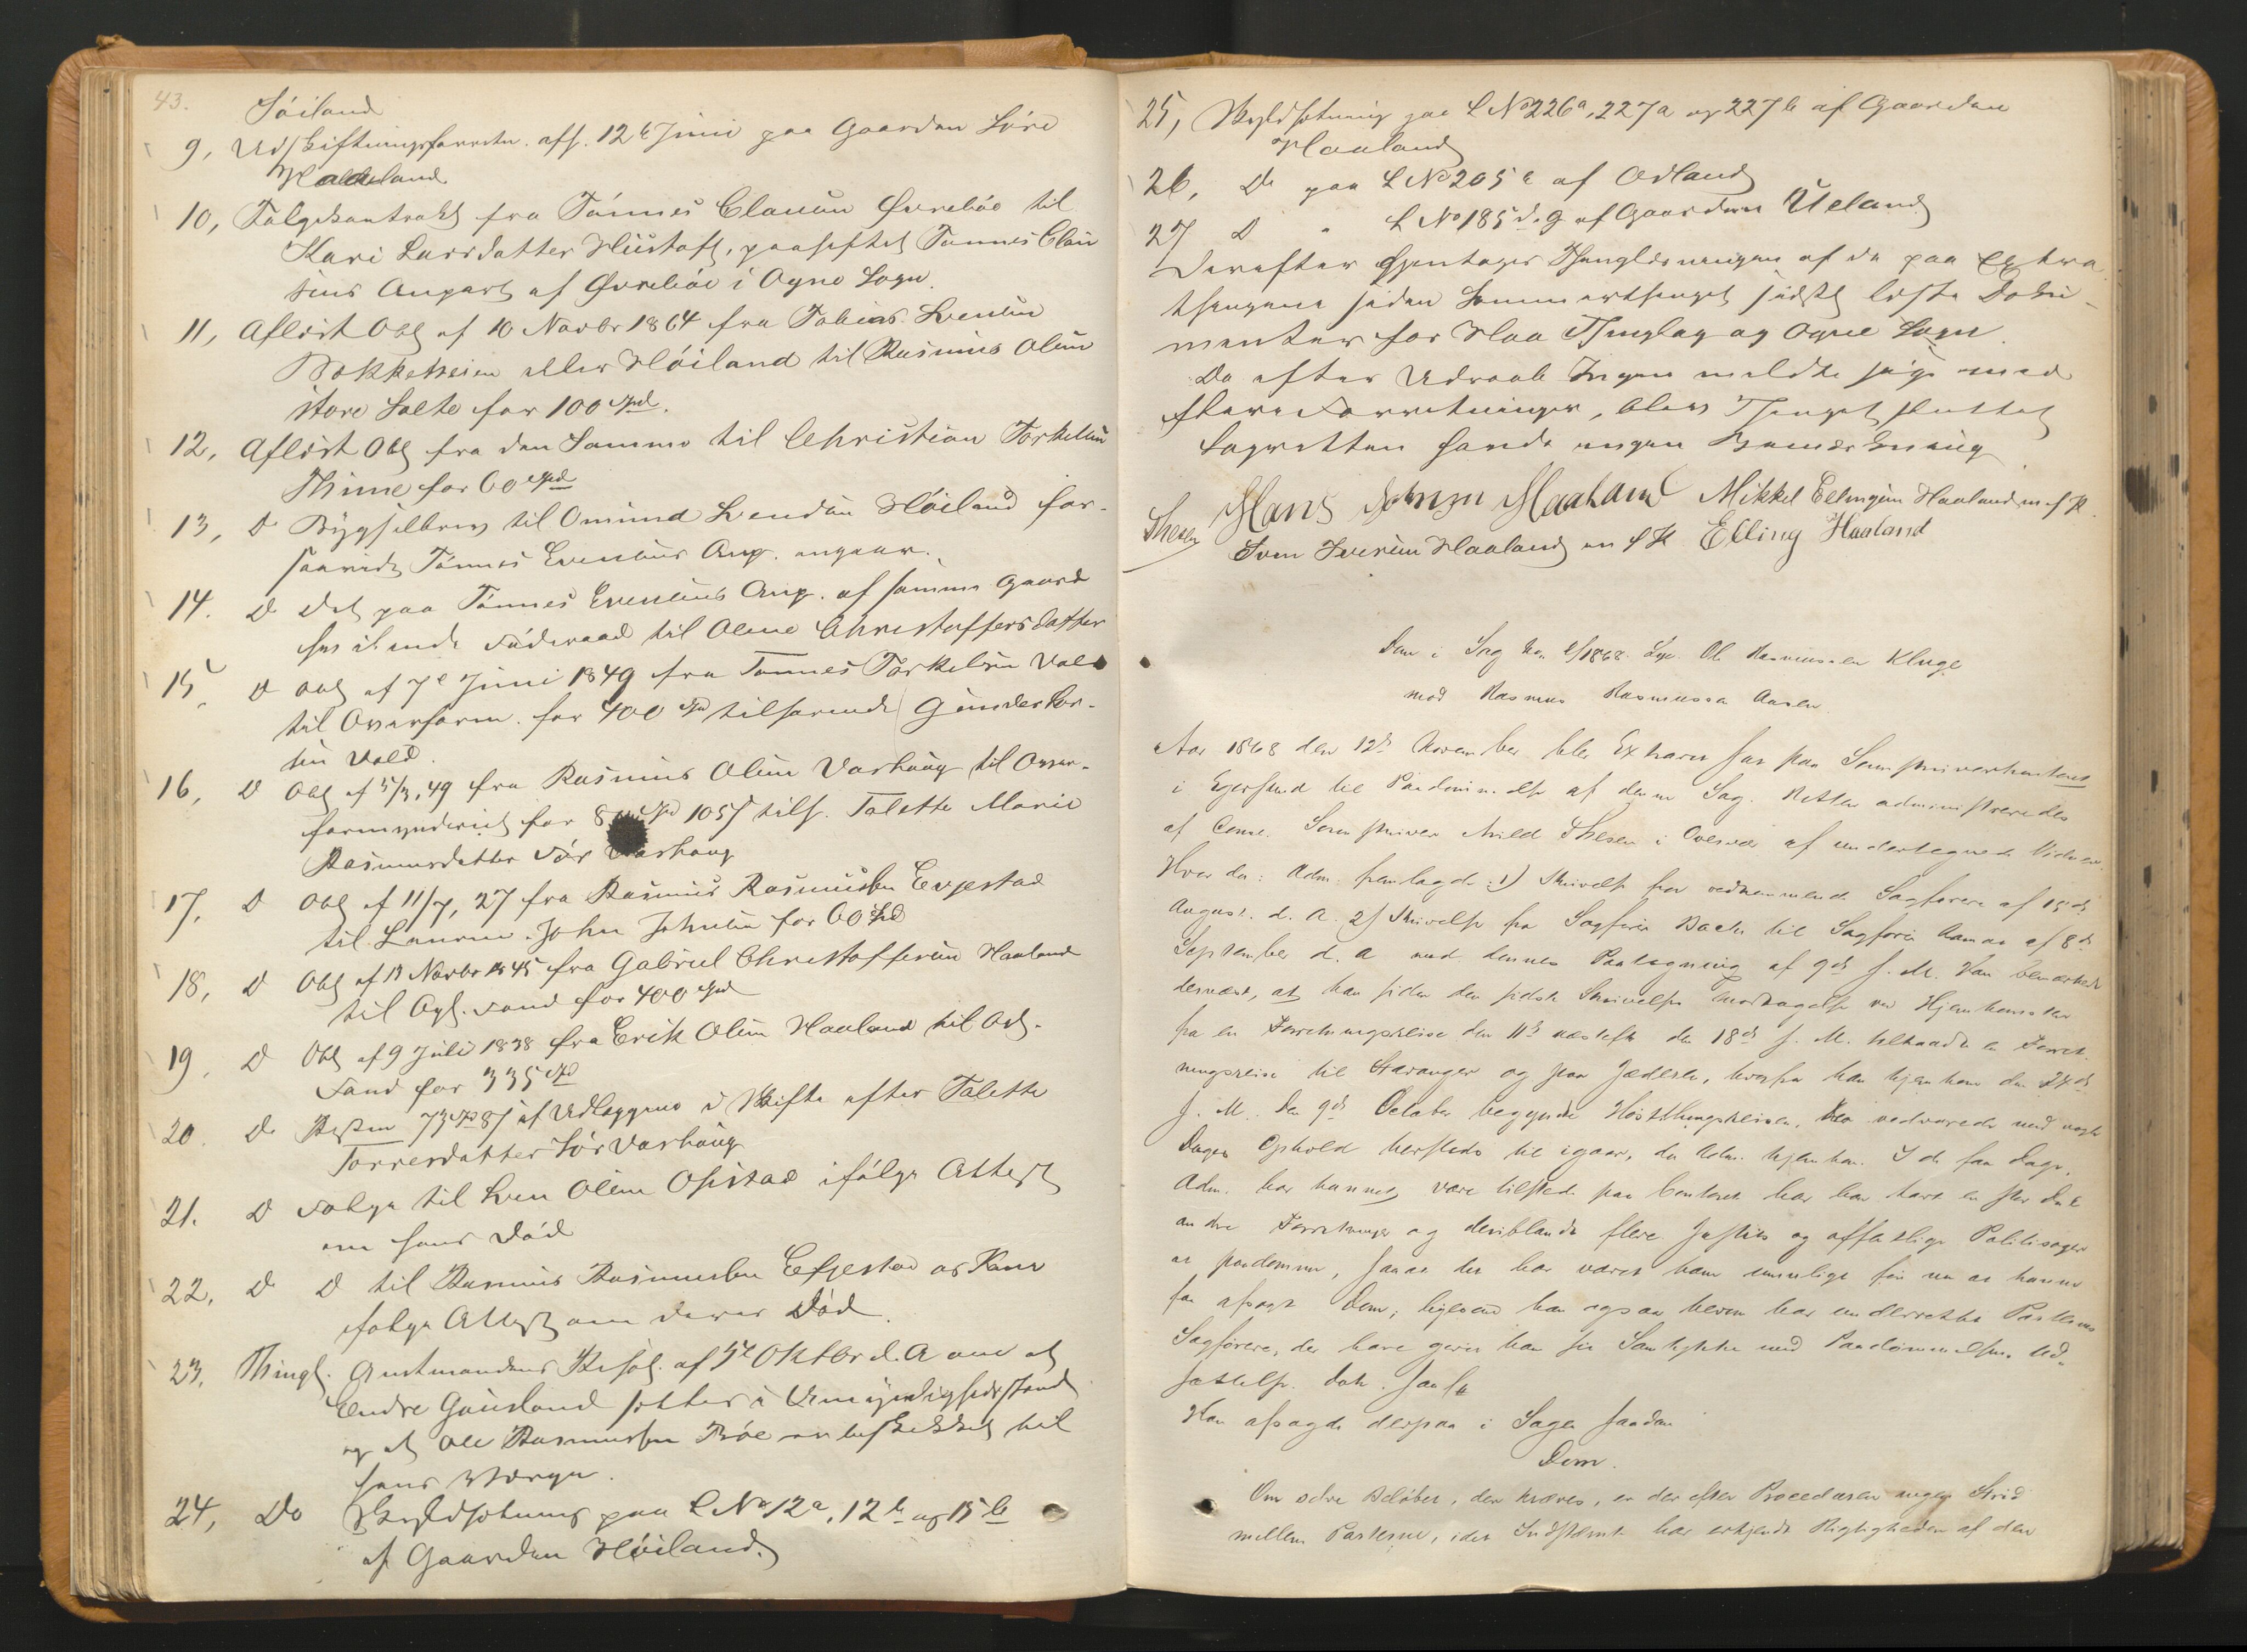 43.
Høiland
9, Udskiftningsforretn. afh. 12te Juni paa Gaarden Søre
Haaland
10, Følgekontrakt fra Tønnes Clausen Øvrebøe til
Kari Larsdatter Hustoft, paaheftet Tønnes Clau
sens Anpart af Øvrebøe i Ogne Sogn.
11, Aflæst Obl af 10 Novbr 1864 fra Tobias Svensen
Bækkeheien eller Høiland til Rasmus Olsen
store Salte for 100 Spd.
12, Aflæst Obl fra den Samme til Christian Torkelsen
Thime for 60 Spd
13, D Bygselbrev til Omund Svendsen Høiland for-
saavidt Tønnes Evensens Anp. angaar.
14. D Det paa Tønnes Evensens Anp. af samme Gaard
heftende Føderaad til Olene Christoffersdatter
15, D Obl af 7de Juni 1849 fra Tønnes Torkelsen Vold
til Overform. for 400 Spd tilhørende Gunder Tor-
sen Vold.
16, D Obl af 5/3, 49 fra Rasmus Olsen Varhaug til Over-
formynderiet for 8 Spd 105 s tilh. Tolette Marie
Rasmusdatter Sør Varhaug
17, D Obl af 11/7, 27 fra Rasmus Rasmussen Evjestad
til John Johnsen for 60 Spd
18, D Obl af 13 Novbr 1845 fra Gabriel Christoffersen Haaland
til Opl. Fond for 400 Spd
19, D Obl af 9 Juli 1838 fra Erik Olsen Haaland til Opl.
Fond for 335 Spd
20. D Resten 73 Spd 8 s af Udlæggene i Skifte efter Tolette
Torresdatter Sør Varhaug
21. D Følge til Sven Olsen Opstad ifølge Attest
om hans Død
22, D D til Rasmus Rasmussen Evjestad og Kone
ifølge Attest om deres Død.
23, Thingl. Amtmandens Resol. af 5te Oktbr d. A om at
Endre Gausland sættes i Umyndighedsstand
og at Ole Rasmussen Bøe er beskikket til
hans Værge.
24, Do Skyldsetning paa L No 12a, 12b og 15b
af Gaarden Høiland.
25, Skyldsetning paa L No 226a, 227a og 227b af Gaarden
Haaland
26, Do paa L No 205 af Odland
27 D " L No 185 d. g af Gaarden Ueland
Derefter gjentoges Thinglæsningen af de paa Extra
thingene siden Sommerthinget sidst læste Doku-
menter for Haa Thinglag og Ogne Sogn.
Da efter Udraab Ingen meldte sig med
flere Forretninger, blev Thinget sluttet
Lagretten havde ingen Bemærkning
Thesen Hans Haaland Mikkel Ellingsen Haaland m. f. P.
Sven Iversen Haaland m f P Elling Haaland
Dom i Sag No /1868 Ole Rasmussen Kluge
mod Rasmus Rasmussen Aasen.
Aar 1868 den 12te November blev Extraret sat paa Sorenskriverkontoret
i Egersund til Paadømmelse af denne Sag. Retten administreredes
af Const. Sorenskriver Arild Thesen i Overvær af undertegnede Vidner.
Hvorda: Adm. fremlagde: 1) Skrivelse fra vedkommende Sagførere af 15de
August d. A. 2) Skrivelse fra Sagfører Bache til Sagfører af 8de
September d. A. med dennes Paategning af 9de s. M. Han bemærkede
dernæst, at han siden den sidste Skrivelses Modtagelse ved Hjemkomsten
fra en Forretningsreise den 11te næstefter den 18de s. M. tiltraadte en Forret-
ningsreise til Stavanger og paa Jæderen, hvorfra han hjemkom den 24de
s. M. Den 9de October begyndte Høstthingsreisen, der vedvarede med nogle
Dages Ophold hersteds til igaar, da Adm. hjemkom. I de faa Dage,
Adm. har kunnet være tilstede paa Contoret har han havt en stor Del
andre Forretninger og deriblandt flere Justits og offentlige Politisager
at paadømme, saa at det har været ham umuligt før nu at kunne
faa afsagt Dom; ligesom han ogsaa herom har underrettet Parternes
Sagførere, der have givet ham sit Samtykke med Paadømmelsens Ud-
sættelse.
Han afsagde derpaa i Sagen saadan
Dom.
Om selve Beløbet, der kræves, er der efter Proceduren ingen Strid
mellem Parterne, idet Indstevnte har erkjendt Rigtigheden af den